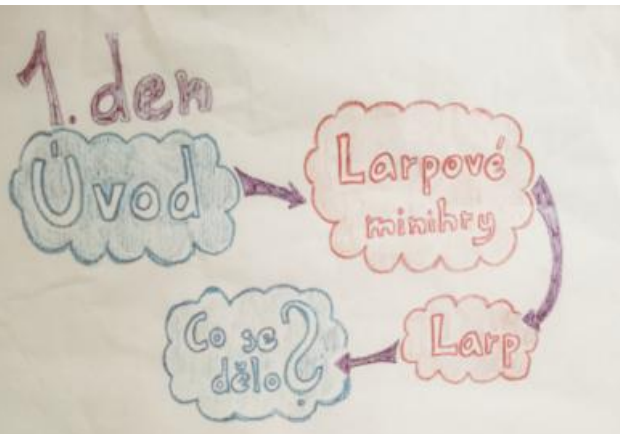 1. den
Úvod
Larpové
minihry
Larp
Co se
dělo?